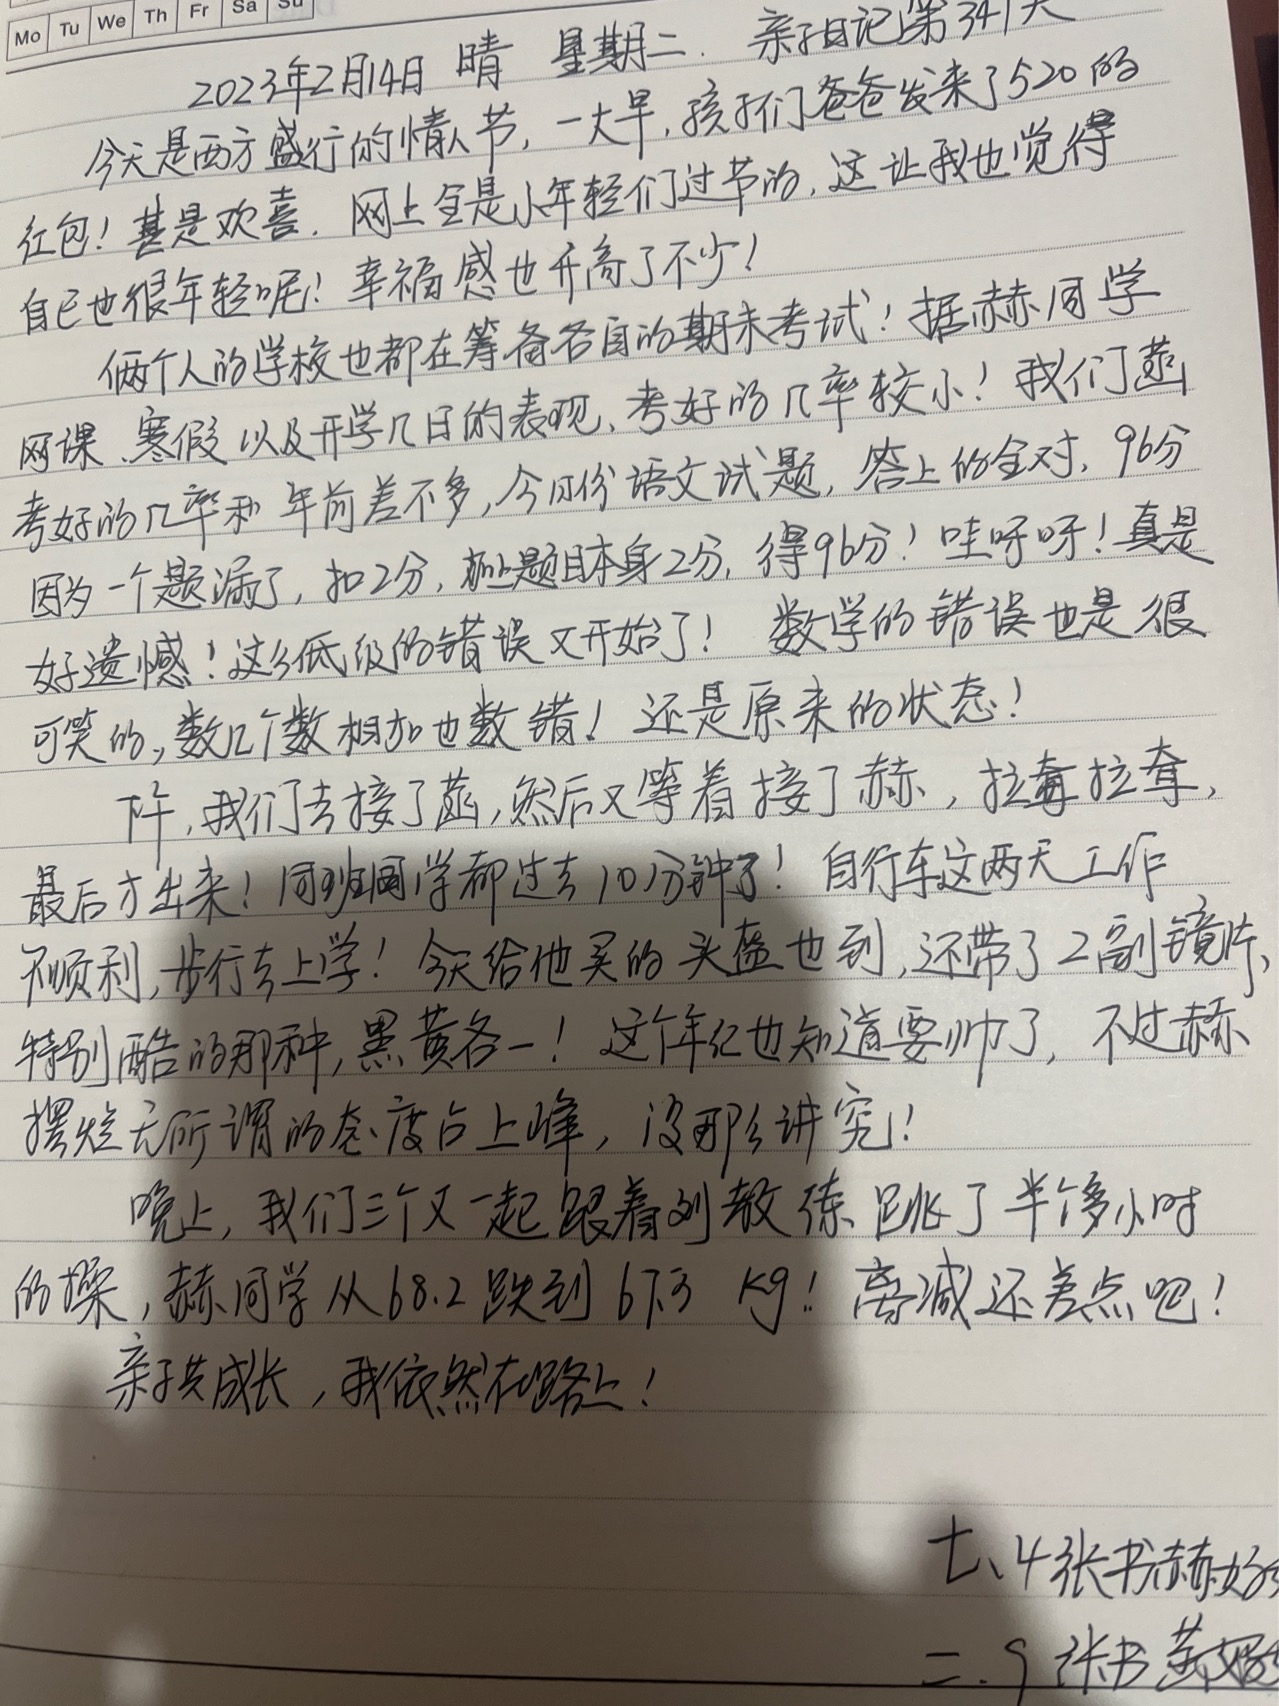 Mo Tu We Th Fr Sa Su
2023年2月14日 晴 星期二. 亲子日记第341天
今天是西方盛行的情人节, 一大早, 孩子们爸爸发来了520的
红包! 甚是欢喜. 网上全是小年轻们过节的, 这让我也觉得
自己也很年轻呢! 幸福感也升高了不少!
俩个人的学校也都在筹备各自的期末考试! 据赫同学
网课、寒假以及开学几日的表现, 考好的几率较小! 我们菡
考好的几率和年前差不多, 今日份语文试题, 答上的全对, 96分
因为一个题漏了, 扣2分, 加上题目本身2分, 得96分! 哇呀呀! 真是
好遗憾! 这么低级的错误又开始了! 数学的错误也是很
可笑的, 数几个数相加也数错! 还是原来的状态!
下午, 我们去接了菡, 然后又等着接了赫, 拉耷拉耷,
最后才出来! 同班同学都过去10分钟了! 自行车这两天工作
不顺利, 步行去上学! 今天给他买的头盔也到, 还带了2副镜片,
特别酷的那种, 黑黄各一! 这个年纪也知道要帅了, 不过赫
摆烂无所谓的态度占上峰, 没那么讲究!
晚上, 我们三个又一起跟着刘教练跳了半个多小时
的操, 赫同学从68.2跌到67.3 Kg! 离减还差点吧!
亲子共成长, 我依然在路上!
七、4 张书赫妈
二.9 张书菡妈